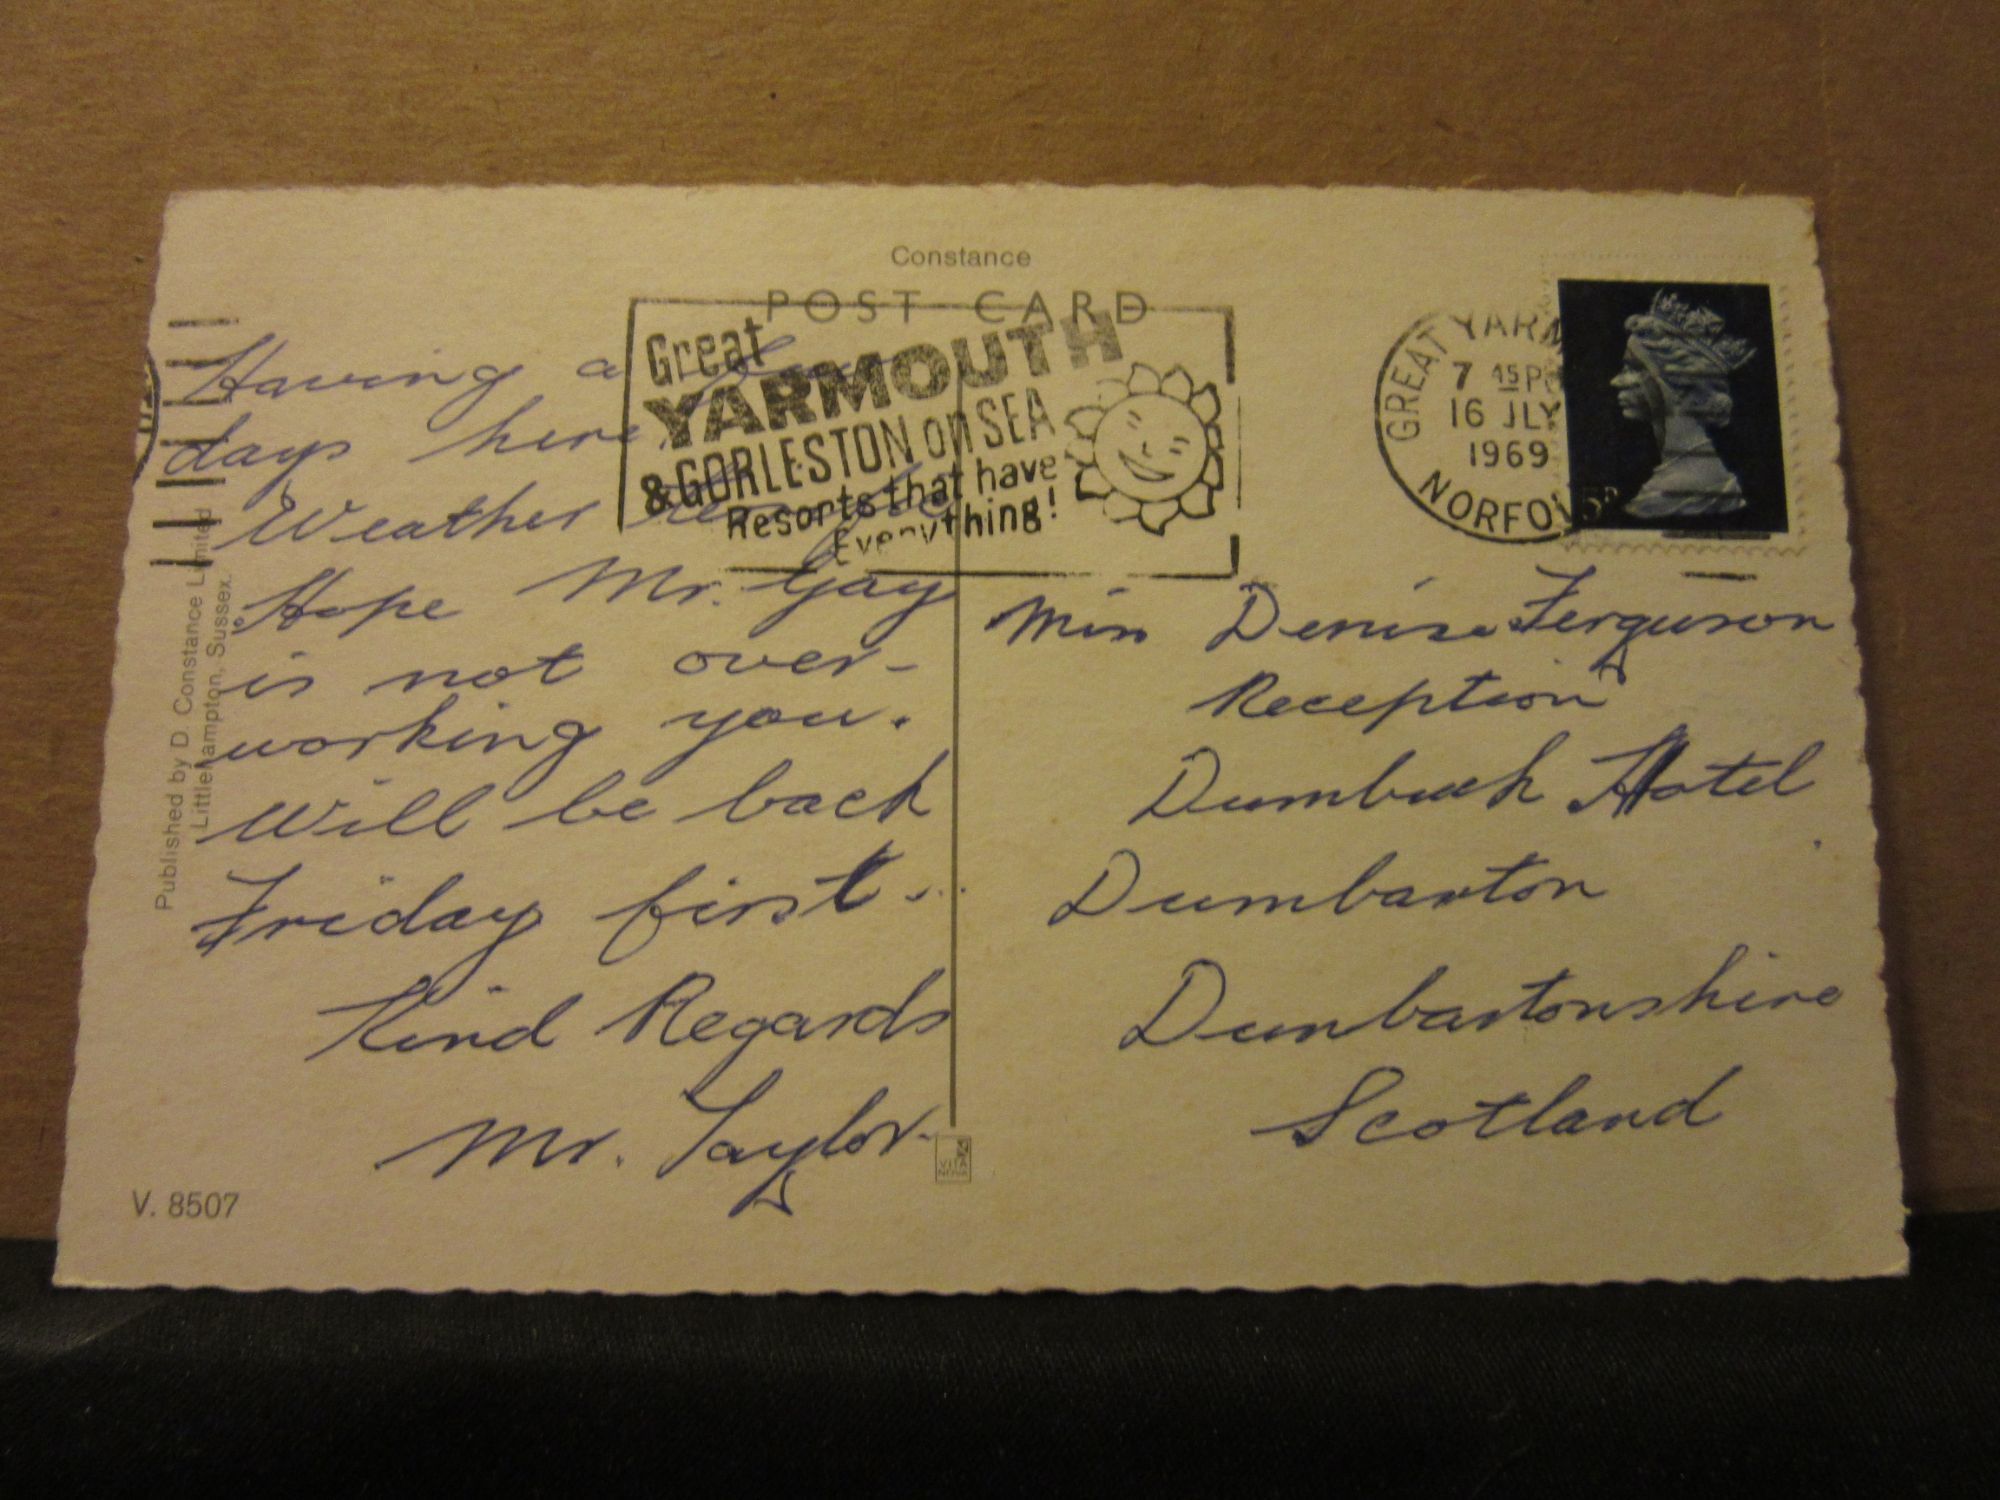 Constance
POST CARD
Great
YARMOUTH
& GORLESTON on SEA
Resorts that have
Everything!
GREAT YARM
7 45 P
16 JLY
1969
NORFO
Having a few
days here.
Weather
Hope Mr. Gay
is not over-
working you.
Will be back
Friday first.
Kind Regards
Mr. Taylor
Miss Denise Ferguson
Reception
Dumbuck Hotel
Dumbarton
Dunbartonshire
Scotland
Published by D. Constance Limited
Littlehampton, Sussex.
V. 8507
VITA
NOVA